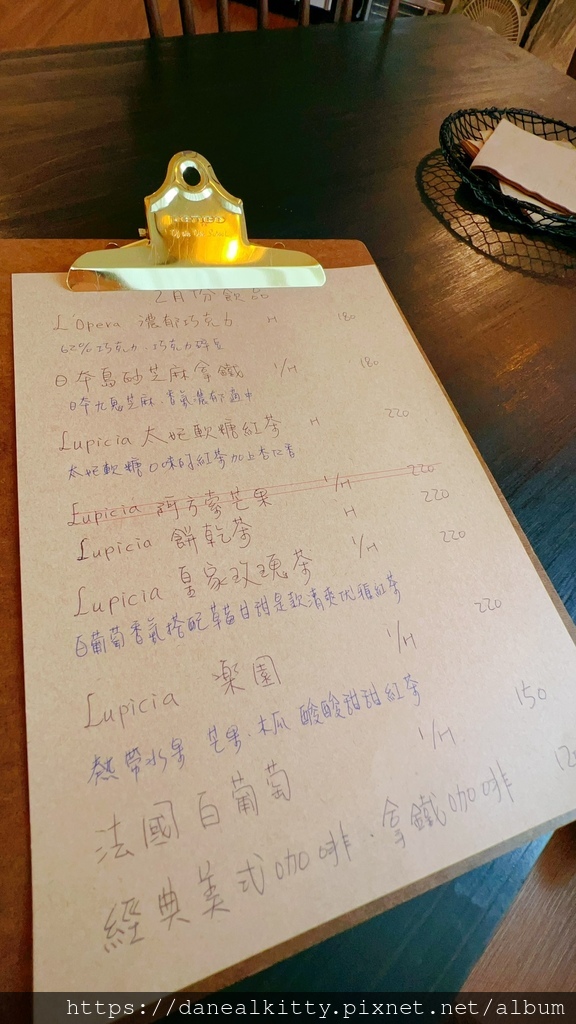 2月份飲品
L'Opera 濃郁巧克力 H 180
62%巧克力、巧克力碎豆
日本島砂芝麻拿鐵 I/H 180
日本九鬼芝麻 香氣濃郁適中
Lupicia 太妃軟糖紅茶 H 220
太妃軟糖口味的紅茶加上杏仁香
Lupicia 阿方索芒果 I/H 220
Lupicia 餅乾茶 H 220
Lupicia 皇家玫瑰茶 I/H 220
白葡萄香氣搭配草莓甘甜是款清爽优雅紅茶
Lupicia 楽園 I/H 220
熱帶水果 芒果、木瓜 酸酸甜甜紅茶
法國白葡萄 I/H 150
經典美式咖啡、拿鐵咖啡
https://danealkitty.pixnet.net/album